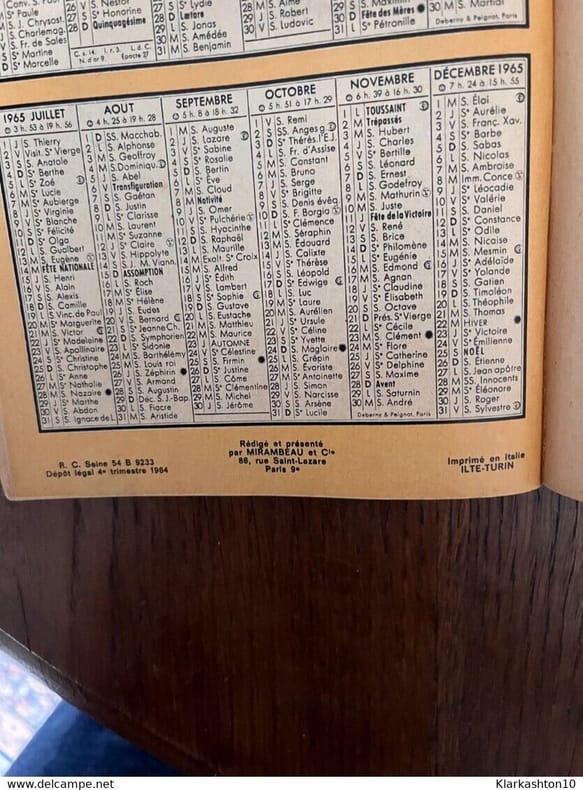 S. Paule
J. Chrysost.
S. Charlemag.
V S. Fr. de Sales
S Sᵉ Martine
D Sᵉ Marcelle
26 V S. Nestor
27 S Sᵉ Honorine
28 D Quinquagésime
27 S Sᵉ Lydie
28 D Lætare
29 L S. Jonas
30 M S. Amédée
31 M S. Benjamin
29 J S. Robert
30 V S. Ludovic
30 D Fête des Mères
31 L Sᵉ Pétronille
30 M S. Martial
Deberny & Peignot, Paris
1965 JUILLET
3 h. 53 à 19 h. 56
1 J S. Thierry
2 V Visit. Sᵉ Vierge
3 S S. Anatole
4 D Sᵉ Berthe
5 L Sᵉ Zoé
6 M Sᵉ Lucie
7 M Sᵉ Aubierge
8 J Sᵉ Virginie
9 V Sᵉ Blanche
10 S Sᵉ Félicité
11 D Sᵉ Olga
12 L S. Gualbert
13 M S. Eugène
14 M FÊTE NATIONALE
15 J S. Henri
16 V S. Alain
17 S S. Alexis
18 D S. Camille
19 L S. Vinc. de Paul
20 M Sᵉ Marguerite
21 M S. Victor
22 J Sᵉ Madeleine
23 V S. Apollinaire
24 S Sᵉ Christine
25 D S. Christophe
26 L Sᵉ Anne
27 M Sᵉ Nathalie
28 M S. Nazaire
29 J Sᵉ Marthe
30 V S. Abdon
31 S S. Ignace de L.
AOUT
4 h. 25 à 19 h. 28
1 D SS. Macchab.
2 L S. Alphonse
3 M S. Geoffroy
4 M S. Dominiqu.
5 J S. Abel
6 V Transfiguration
7 S S. Gaétan
8 D S. Justin
9 L Sᵉ Clarisse
10 M S. Laurent
11 M Sᵉ Suzanne
12 J Sᵉ Claire
13 V S. Hippolyte
14 S S. J. M. Viann.
15 D ASSOMPTION
16 L S. Roch
17 M S. Elise
18 M Sᵉ Hélène
19 J S. Eudes
20 V S. Bernard
21 S Sᵉ Jeanne Ch.
22 D S. Symphorien
23 L S. Sidonie
24 M S. Barthélémy
25 M S. Louis roi
26 J S. Zéphirin
27 V S. Armand
28 S S. Augustin
29 D Déc. S.J.-Bap.
30 L S. Fiacre
31 M S. Aristide
SEPTEMBRE
5 h. 8 à 18 h. 32
1 M S. Auguste
2 J S. Lazare
3 V Sᵉ Sabine
4 S Sᵉ Rosalie
5 D S. Bertin
6 L Sᵉ Eve
7 M S. Cloud
8 M Nativité
9 J S. Omer
10 V Sᵉ Pulchérie
11 S S. Hyacinthe
12 D S. Raphaël
13 L S. Maurille
14 M Exalt. Sᵉ Croix
15 M S. Alfred
16 J Sᵉ Edith
17 V S. Lambert
18 S Sᵉ Sophie
19 D S. Gustave
20 L S. Eustache
21 M S. Matthieu
22 M S. Maurice
23 J AUTOMNE
24 V Sᵉ Célestine
25 S S. Firmin
26 D Sᵉ Justine
27 L S. Côme
28 M Sᵉ Clémentine
29 M S. Michel
30 J S. Jérôme
OCTOBRE
5 h. 51 à 17 h. 29
1 V S. Remi
2 S SS. Anges g.
3 D Sᵉ Thérès. l'E.J.
4 L S. Fr. d'Assise
5 M S. Constant
6 M S. Bruno
7 J S. Serge
8 V Sᵉ Brigitte
9 S S. Denis évêq.
10 D S. F. Borgia
11 L Sᵉ Clémence
12 M S. Séraphin
13 M S. Edouard
14 J S. Calixte
15 V Sᵉ Thérèse
16 S S. Léopold
17 D Sᵉ Edwige
18 L S. Luc
19 M Sᵉ Laure
20 M S. Aurélien
21 J Sᵉ Ursule
22 V Sᵉ Céline
23 S Sᵉ Yvette
24 D S. Magloire
25 L S. Crépin
26 M S. Evariste
27 M Sᵉ Antoinette
28 J S. Simon
29 V S. Narcisse
30 S S. Arsène
31 D Sᵉ Lucile
NOVEMBRE
6 h. 39 à 16 h. 30
1 L TOUSSAINT
2 M Trépassés
3 M S. Hubert
4 J S. Charles
5 V Sᵉ Bertille
6 S S. Léonard
7 D S. Ernest
8 L S. Godefroy
9 M S. Mathurin
10 M S. Juste
11 J Fête de la Victoire
12 V S. René
13 S S. Brice
14 D Sᵉ Philomène
15 L Sᵉ Eugénie
16 M S. Edmond
17 M S. Agnan
18 J Sᵉ Claudine
19 V Sᵉ Elisabeth
20 S S. Octave
21 D Prés. Sᵉ Vierge
22 L Sᵉ Cécile
23 M S. Clément
24 M Sᵉ Flore
25 J Sᵉ Catherine
26 V Sᵉ Delphine
27 S S. Maxime
28 D Avent
29 L S. Saturnin
30 M S. André
Deberny & Peignot, Paris
DÉCEMBRE 1965
7 h. 24 à 15 h. 55
1 M S. Éloi
2 J Sᵉ Aurélie
3 V S. Franç. Xav.
4 S Sᵉ Barbe
5 D S. Sabas
6 L S. Nicolas
7 M S. Ambroise
8 M Imm. Conce.
9 J Sᵉ Léocadie
10 V Sᵉ Valérie
11 S S. Daniel
12 D Sᵉ Constance
13 L Sᵉ Odile
14 M S. Nicaise
15 M S. Mesmin
16 J Sᵉ Adélaïde
17 V Sᵉ Yolande
18 S S. Gatien
19 D S. Timoléon
20 L S. Théophile
21 M S. Thomas
22 M HIVER
23 J Sᵉ Victoire
24 V Sᵉ Émilienne
25 S NOËL
26 D S. Etienne
27 L S. Jean apôtre
28 M SS. Innocents
29 M Sᵉ Eléonore
30 J S. Roger
31 V S. Sylvestre
R. C. Seine 54 B 9233
Dépôt légal 4ᵉ trimestre 1964
Rédigé et présenté
par MIRAMBEAU et Cⁱᵉ
86, rue Saint-Lazare
Paris 9ᵉ
Imprimé en Italie
ILTE-TURIN
www.delcampe.net
Klarkashton10